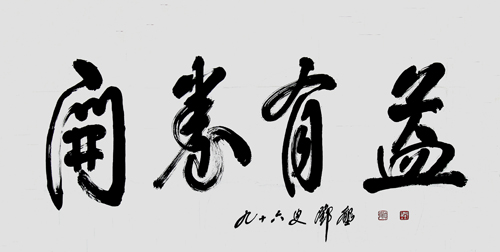 開卷有益
九十六叟鄧